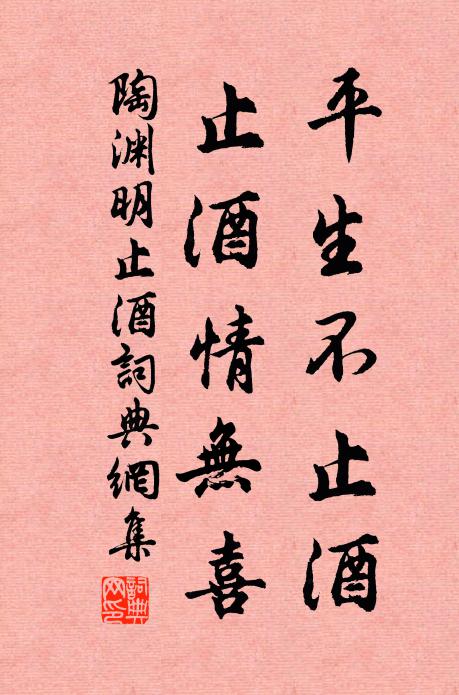 平生不止酒
止酒情無喜
陶渊明止酒詞典網集
詞典
网印